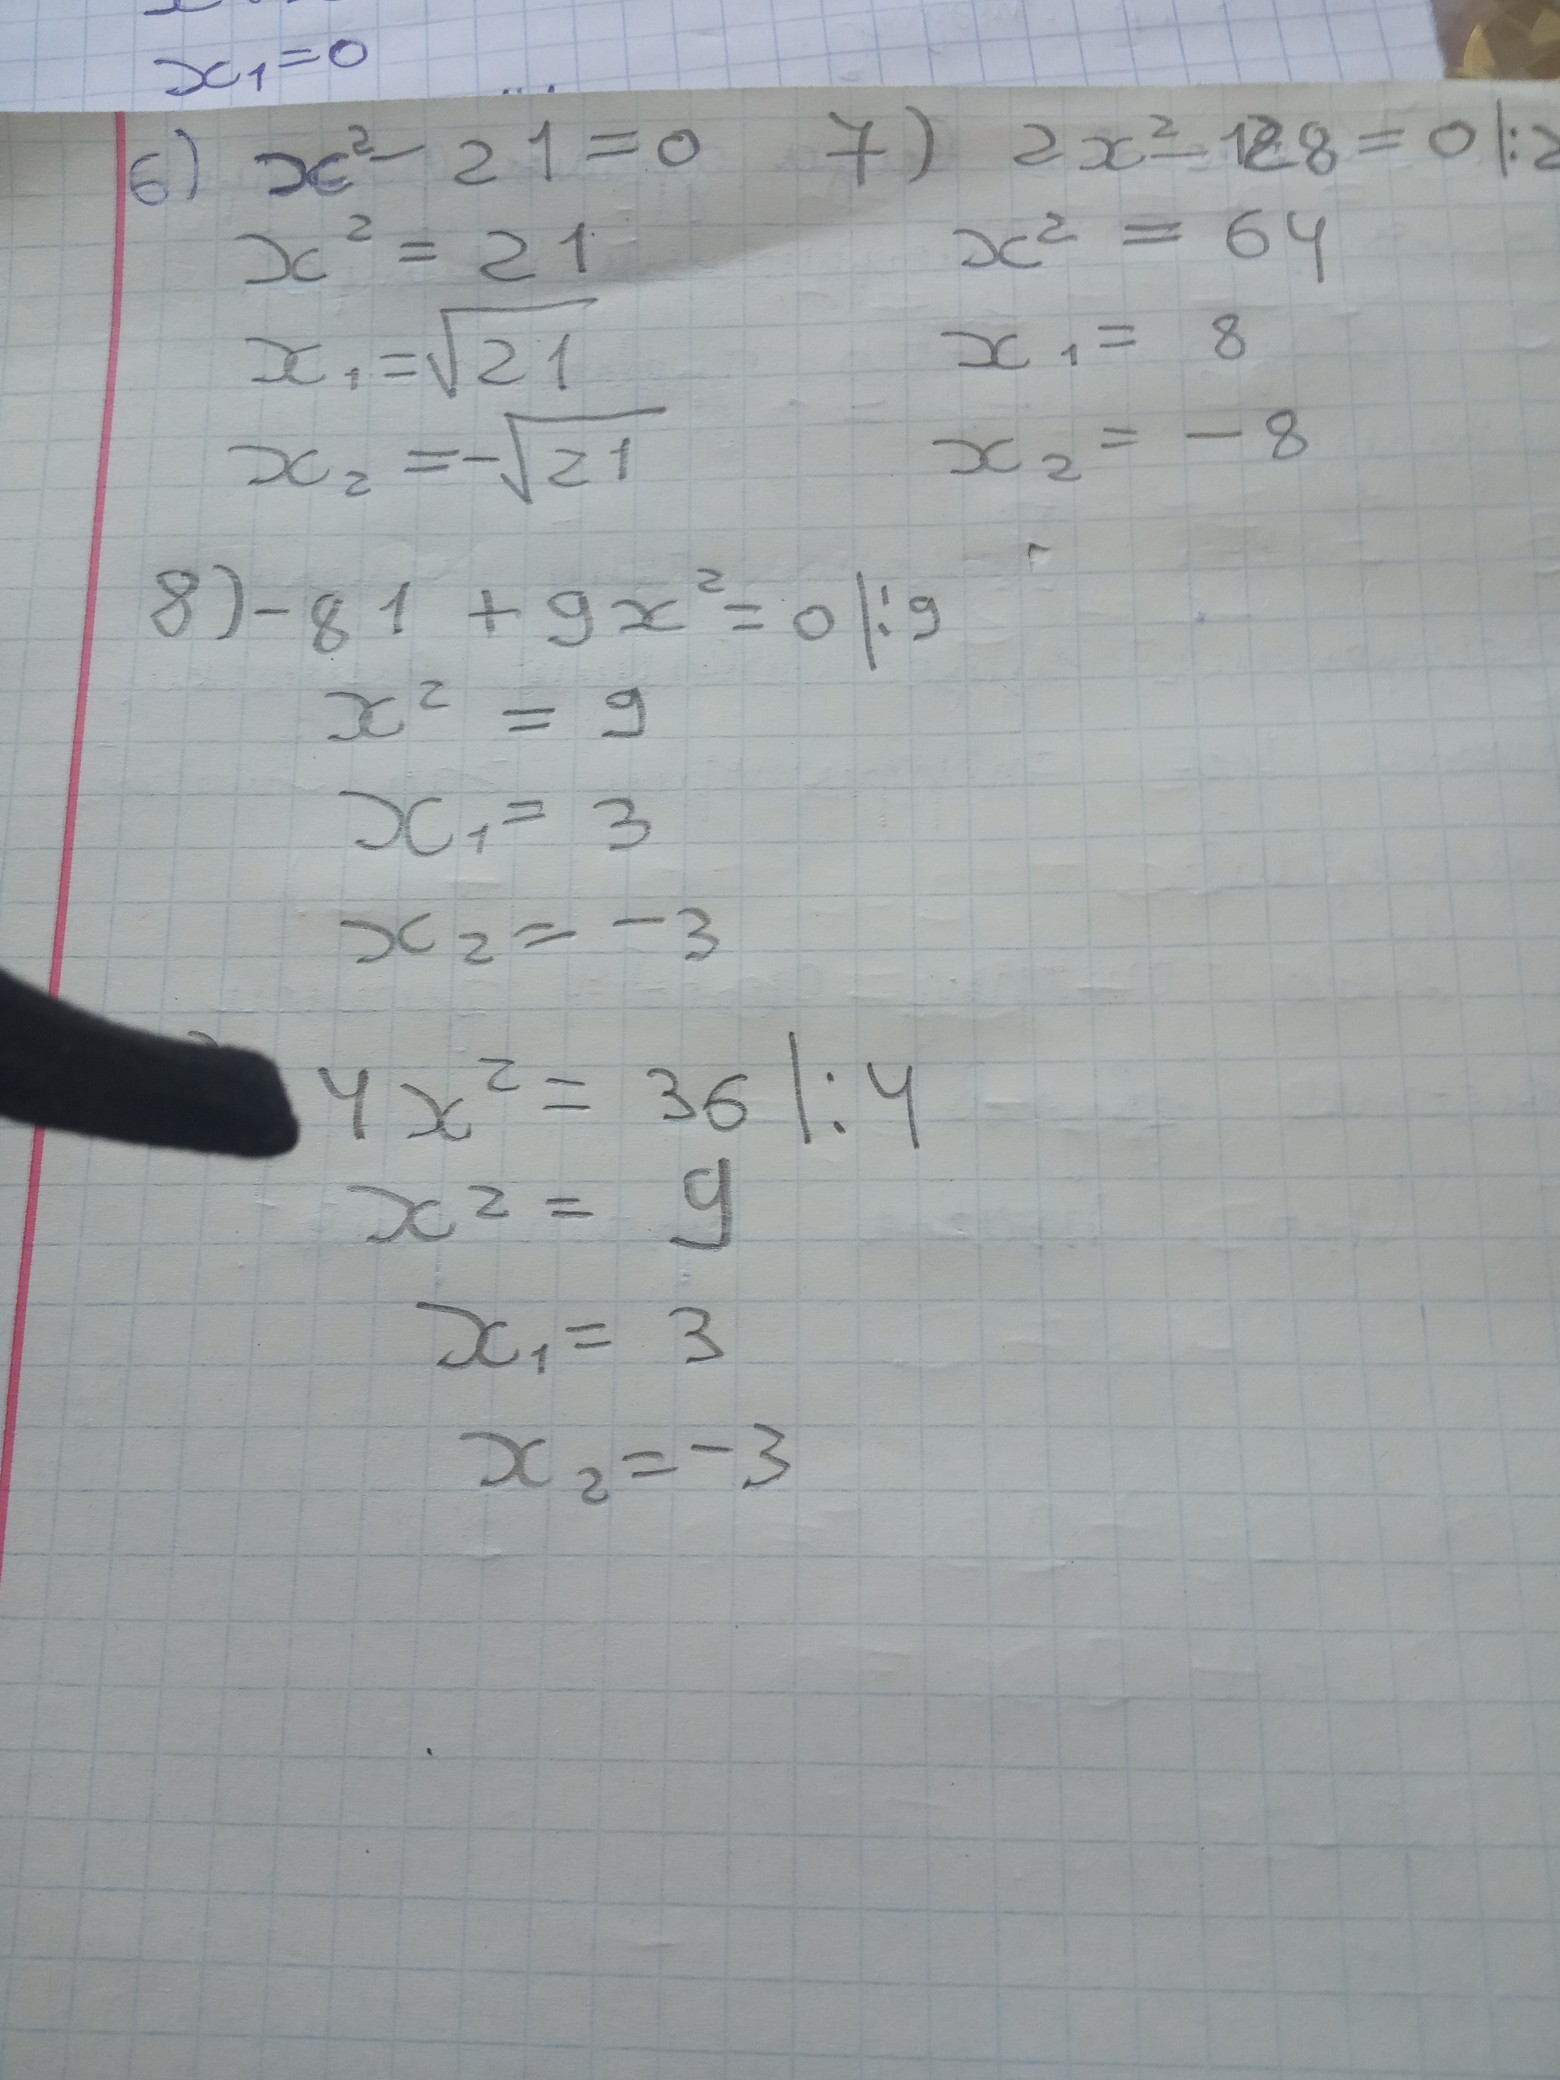 x₁=0
6) x²-21=0
x²=21
x₁=√21
x₂=-√21
7) 2x²-128=0|:2
x²=64
x₁=8
x₂=-8
8) -81+9x²=0|:9
x²=9
x₁=3
x₂=-3
4x²=36|:4
x²=9
x₁=3
x₂=-3